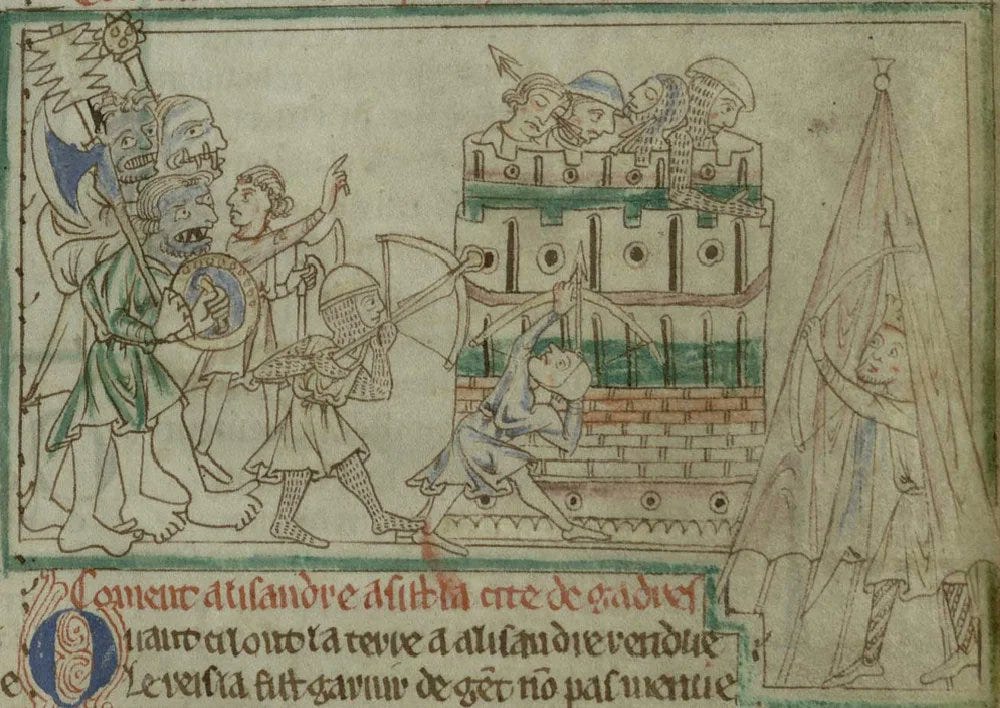 Coment alisandre asist la cite de gadres
Quant cil ont la terre a alisandre rendue
Le reis la fist garnir de gēt nō pas menue